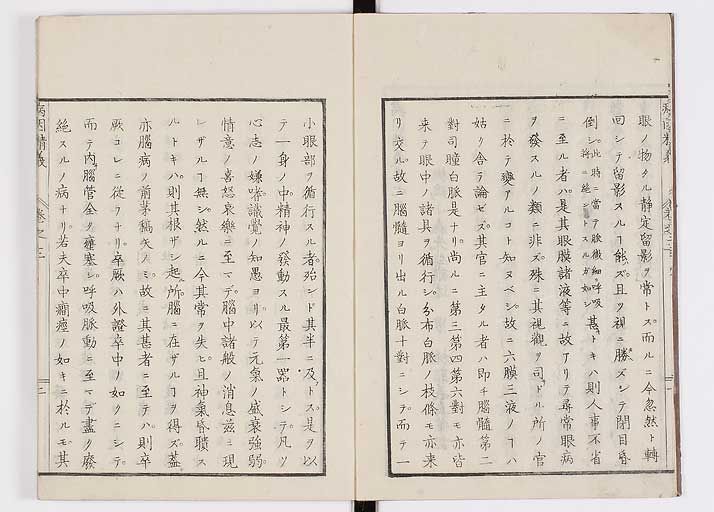 眼ノ物タル靜定留影ヲ常トス。而ルニ今忽然ト轉
回シテ留影スルヿ能ズ。且ヲ視ニ勝ズシテ閉目昏
倒シ。此時ニ當テ脉微細呼吸将ニ絶シトスルガ如シ甚トキハ則人事不省
ニ至ル者ハ。是其眼膜諸液等ニ故アリテ尋常眼病
ヲ發スルノ類ニ非ズ。殊ニ其視觀ヲ司ドル所ノ官
ニ於テ變アルコト知ヌベシ。故ニ六膜三液ノヿハ
姑ク舎テ論ゼズ。其官ニ主タル者ハ即チ腦髓第二
對司瞳白脉是ナリ。尚ルニ第三第四第六對モ亦皆
来テ眼中ノ諸具ヲ循行シ。分布白脉ノ枝條モ亦来
リ交ル。故ニ腦髓ヨリ出ル白脉十對ニシテ。而テ一
小眼部ヲ循行スル者殆ンド其半ニ及トス。是ヲ以
テ一身ノ中。精神ノ發動スル最第一器トシテ。凡ソ
心志ノ嫌嗜識覺ノ知愚ヨリ。以テ元氣ノ盛衰強弱。
情意ノ喜怒哀樂ニ至マデ。腦中諸般ノ消息茲ニ現
レザルヿ無シ。然ルニ今其常ヲ失ヒ。且神氣昏瞶ス
ルトキハ。則其根ザシ起所。腦ニ在ザルヿヲ得ズ。蓋
亦腦病ノ前茅稿矢ノミ。故ニ其甚者ニ至テハ。則卒
厥コレニ從フナリ。卒厥ハ外證卒中ノ如クニシテ。
而テ内。腦管全ヲ壅塞シ。呼吸脈動ニ至マデ盡ク廢
絶スルノ病ナリ。若夫卒中癇痙ノ如キニ於ルモ。其
病因精義
巻之三
二